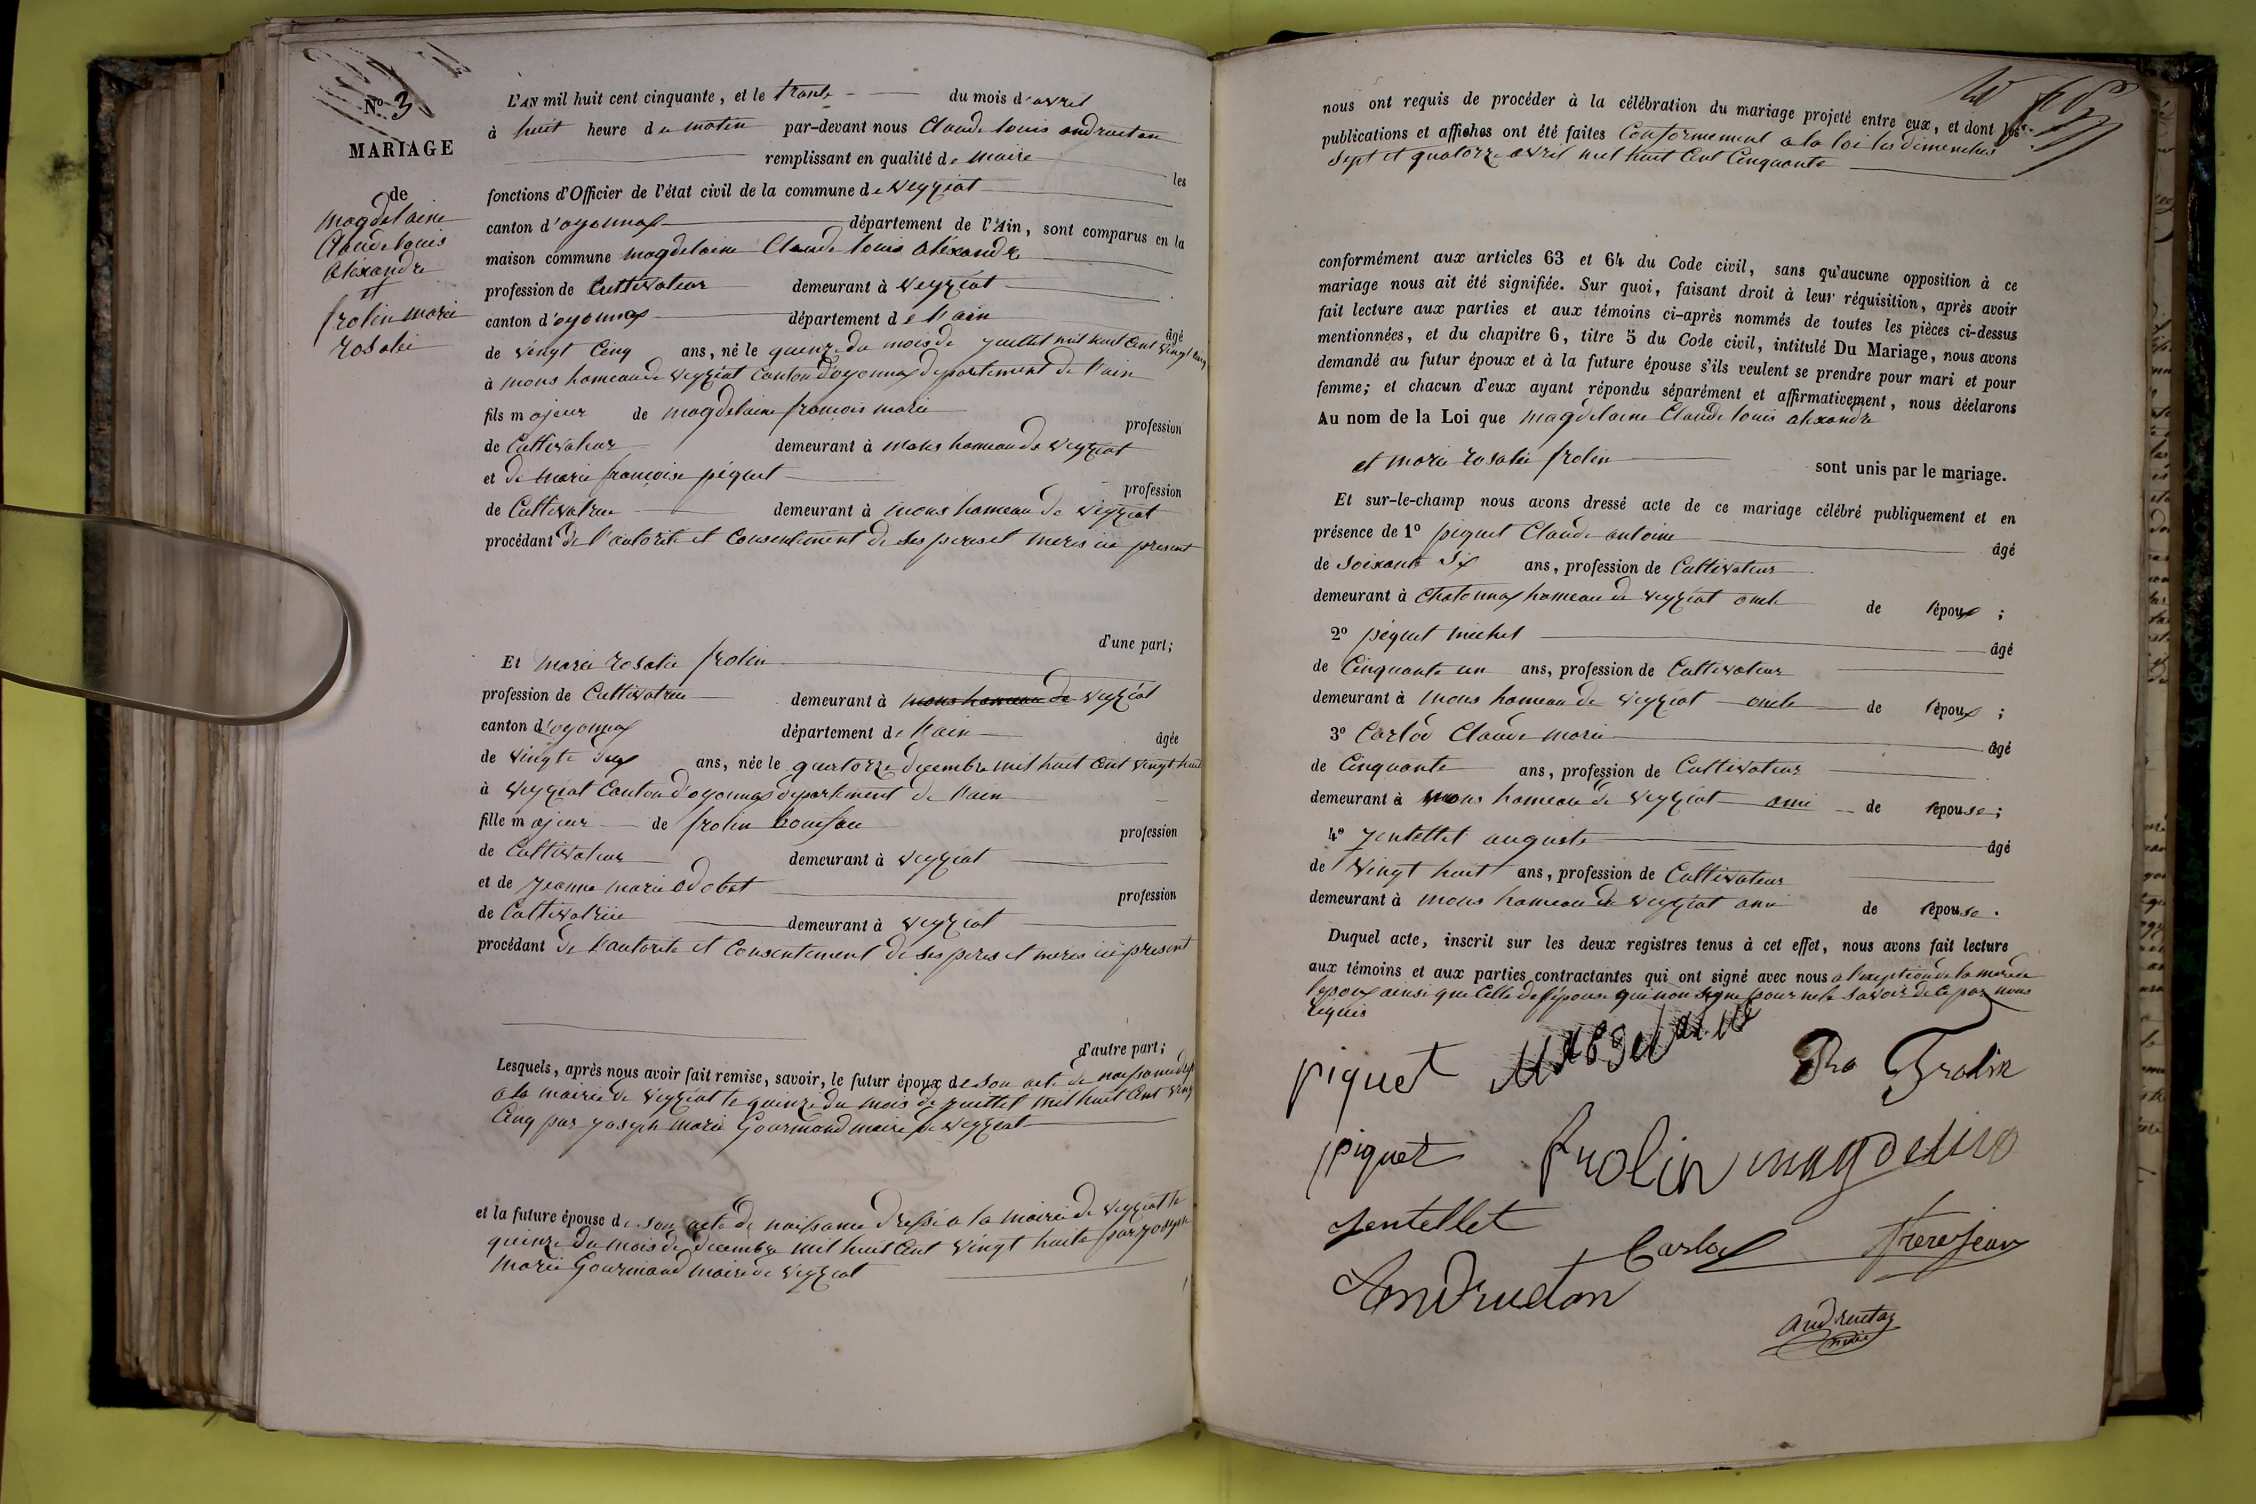 N° 3
MARIAGE
de
magdelaine
Claude louis
alexandre
et
frolin marie
rosalie
L'AN mil huit cent cinquante, et le trante du mois d'avril
à huit heure du matin par-devant nous Claude louis andruetan
remplissant en qualité de maire les
fonctions d'Officier de l'état civil de la commune de Veyziat
canton d'oyonnax département de l'Ain, sont comparus en la
maison commune magdelaine Claude louis alexandre
profession de Cultivateur demeurant à Veyziat
canton d'oyonnax département de l'ain âgé
de vingt Cinq ans, né le quinze du mois de juillet mil huit Cent vingt Cinq
à mons hameau de Veyziat Canton d'oyonnax departement de l'ain
fils majeur de magdelaine françois marie profession
de Cultivateur demeurant à mons hameau de Veyziat
et de marie françoise péquet profession
de Cultivatrice demeurant à mons hameau de Veyziat
procédant de l'autorite et Consentement de ses peres et meres ici present
d'une part;
Et marie rosalie frolin
profession de Cultivatrice demeurant à mons hameau de Veyziat
canton d'oyonnax département de l'ain âgée
de vingt ans, née le quatorze decembre mil huit Cent vingt huit
à Veyziat Canton d'oyonnax departement de l'ain
fille majeur de frolin profession
de Cultivateur demeurant à Veyziat
et de jeanne marie adobet profession
de Cultivatrice demeurant à Veyziat
procédant de l'autorite et Consentement de ses peres et meres ici present
d'autre part;
Lesquels, après nous avoir fait remise, savoir, le futur époux de son acte de naissance
a la mairie de Veyziat le quinze du mois de juillet mil huit Cent vingt
Cinq par joseph marie Gourmand maire de Veyziat
et la future épouse de son acte de naissance dressé a la mairie de Veyziat le
quinze du mois de decembre mil huit Cent vingt huite par joseph
marie Gourmand maire de Veyziat
nous ont requis de procéder à la célébration du mariage projeté entre eux, et dont les
publications et affiches ont été faites Conformement a la loi les dimenches
sept et quatorze avril mil huit Cent Cinquante
conformément aux articles 63 et 64 du Code civil, sans qu'aucune opposition à ce
mariage nous ait été signifiée. Sur quoi, faisant droit à leur réquisition, après avoir
fait lecture aux parties et aux témoins ci-après nommés de toutes les pièces ci-dessus
mentionnées, et du chapitre 6, titre 5 du Code civil, intitulé Du Mariage, nous avons
demandé au futur époux et à la future épouse s'ils veulent se prendre pour mari et pour
femme; et chacun d'eux ayant répondu séparément et affirmativement, nous déclarons
Au nom de la Loi que magdelaine Claude louis alexandre
et marie rosalie frolin sont unis par le mariage.
Et sur-le-champ nous avons dressé acte de ce mariage célébré publiquement et en
présence de 1° piquet Claude antoine âgé
de soixante six ans, profession de Cultivateur
demeurant à Chatonnax hameau de Veyziat oncle de l'époux ;
2° péquet michel âgé
de Cinquante un ans, profession de Cultivateur
demeurant à mons hameau de Veyziat oncle de l'époux ;
3° Carlod Claude marie âgé
de Cinquante ans, profession de Cultivateur
demeurant à mons hameau de Veyziat ami de l'épouse;
4° jentellet auguste âgé
de vingt huit ans, profession de Cultivateur
demeurant à mons hameau de Veyziat ami de l'épouse.
Duquel acte, inscrit sur les deux registres tenus à cet effet, nous avons fait lecture
aux témoins et aux parties contractantes qui ont signé avec nous a l'exeption de la mere de
l'epoux ainsi que Celle de l'épouse qui non signe pour ne le savoir de Ce par nous
requis
piquet Magdelaine Ro Frolin
piquet frolin magdelino
Jentellet Carlod frerejean
Andruetan
andruetan